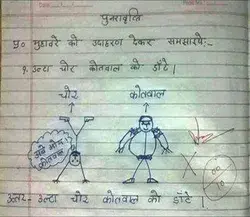 पुनरावृत्ति
प्र० मुहावरे को उदाहरण देकर समझाये:-
१. उल्टा चोर कोतवाल को डाँटे।
चोर
कोतवाल
अबे ओय
कोतवाल
उत्तर- उल्टा चोर कोतवाल को डाँटे।
00
10